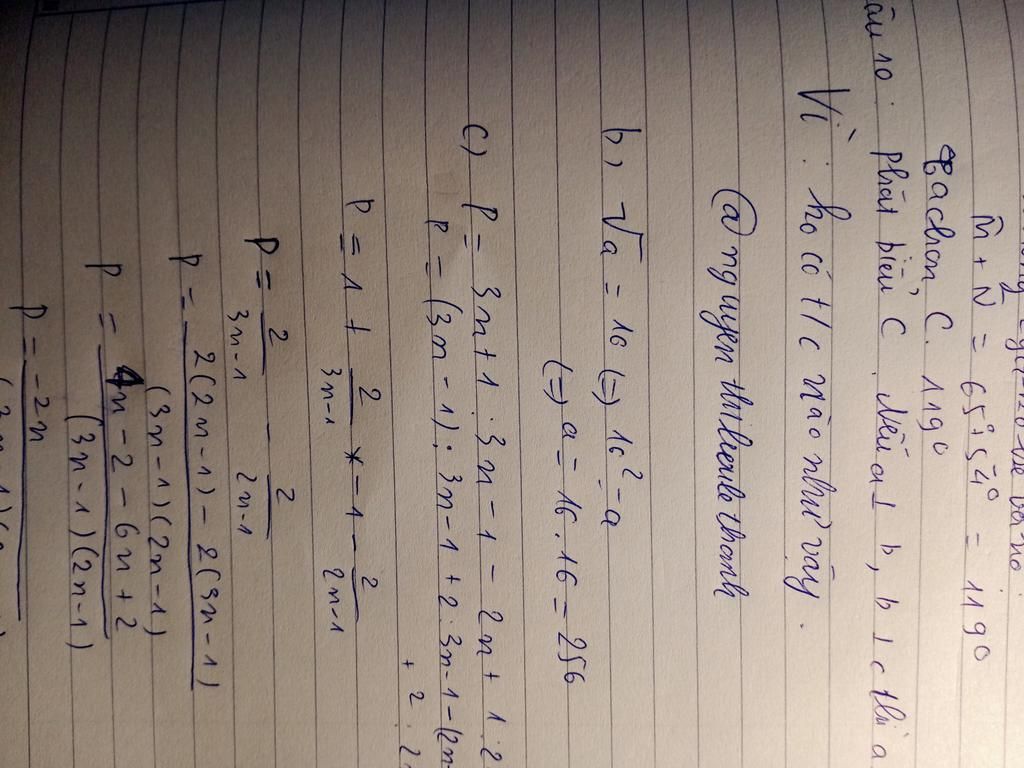 M̂ + N = 65° + 54° = 119°
chọn C. 119°
10: phát biểu C. Nếu a ⊥ b, b ⊥ c thì a
Vì: ko có t/c nào như vậy.
@nguyen thi
b, √a = 16 (=) 16² = a
(=) a = 16.16 = 256
c) P = 3n+1 : 3n-1 - 2n+1:2
P = (3n-1): 3n-1 + 2: 3n-1-(2n-
+ 2 : 2
P = 1 + 2/3n-1 * -1 - 2/2n-1
P = 2/3n-1 - 2/2n-1
P = 2(2n-1) - 2(3n-1)/(3n-1)(2n-1)
P = 4n-2-6n+2/(3n-1)(2n-1)
P = -2n